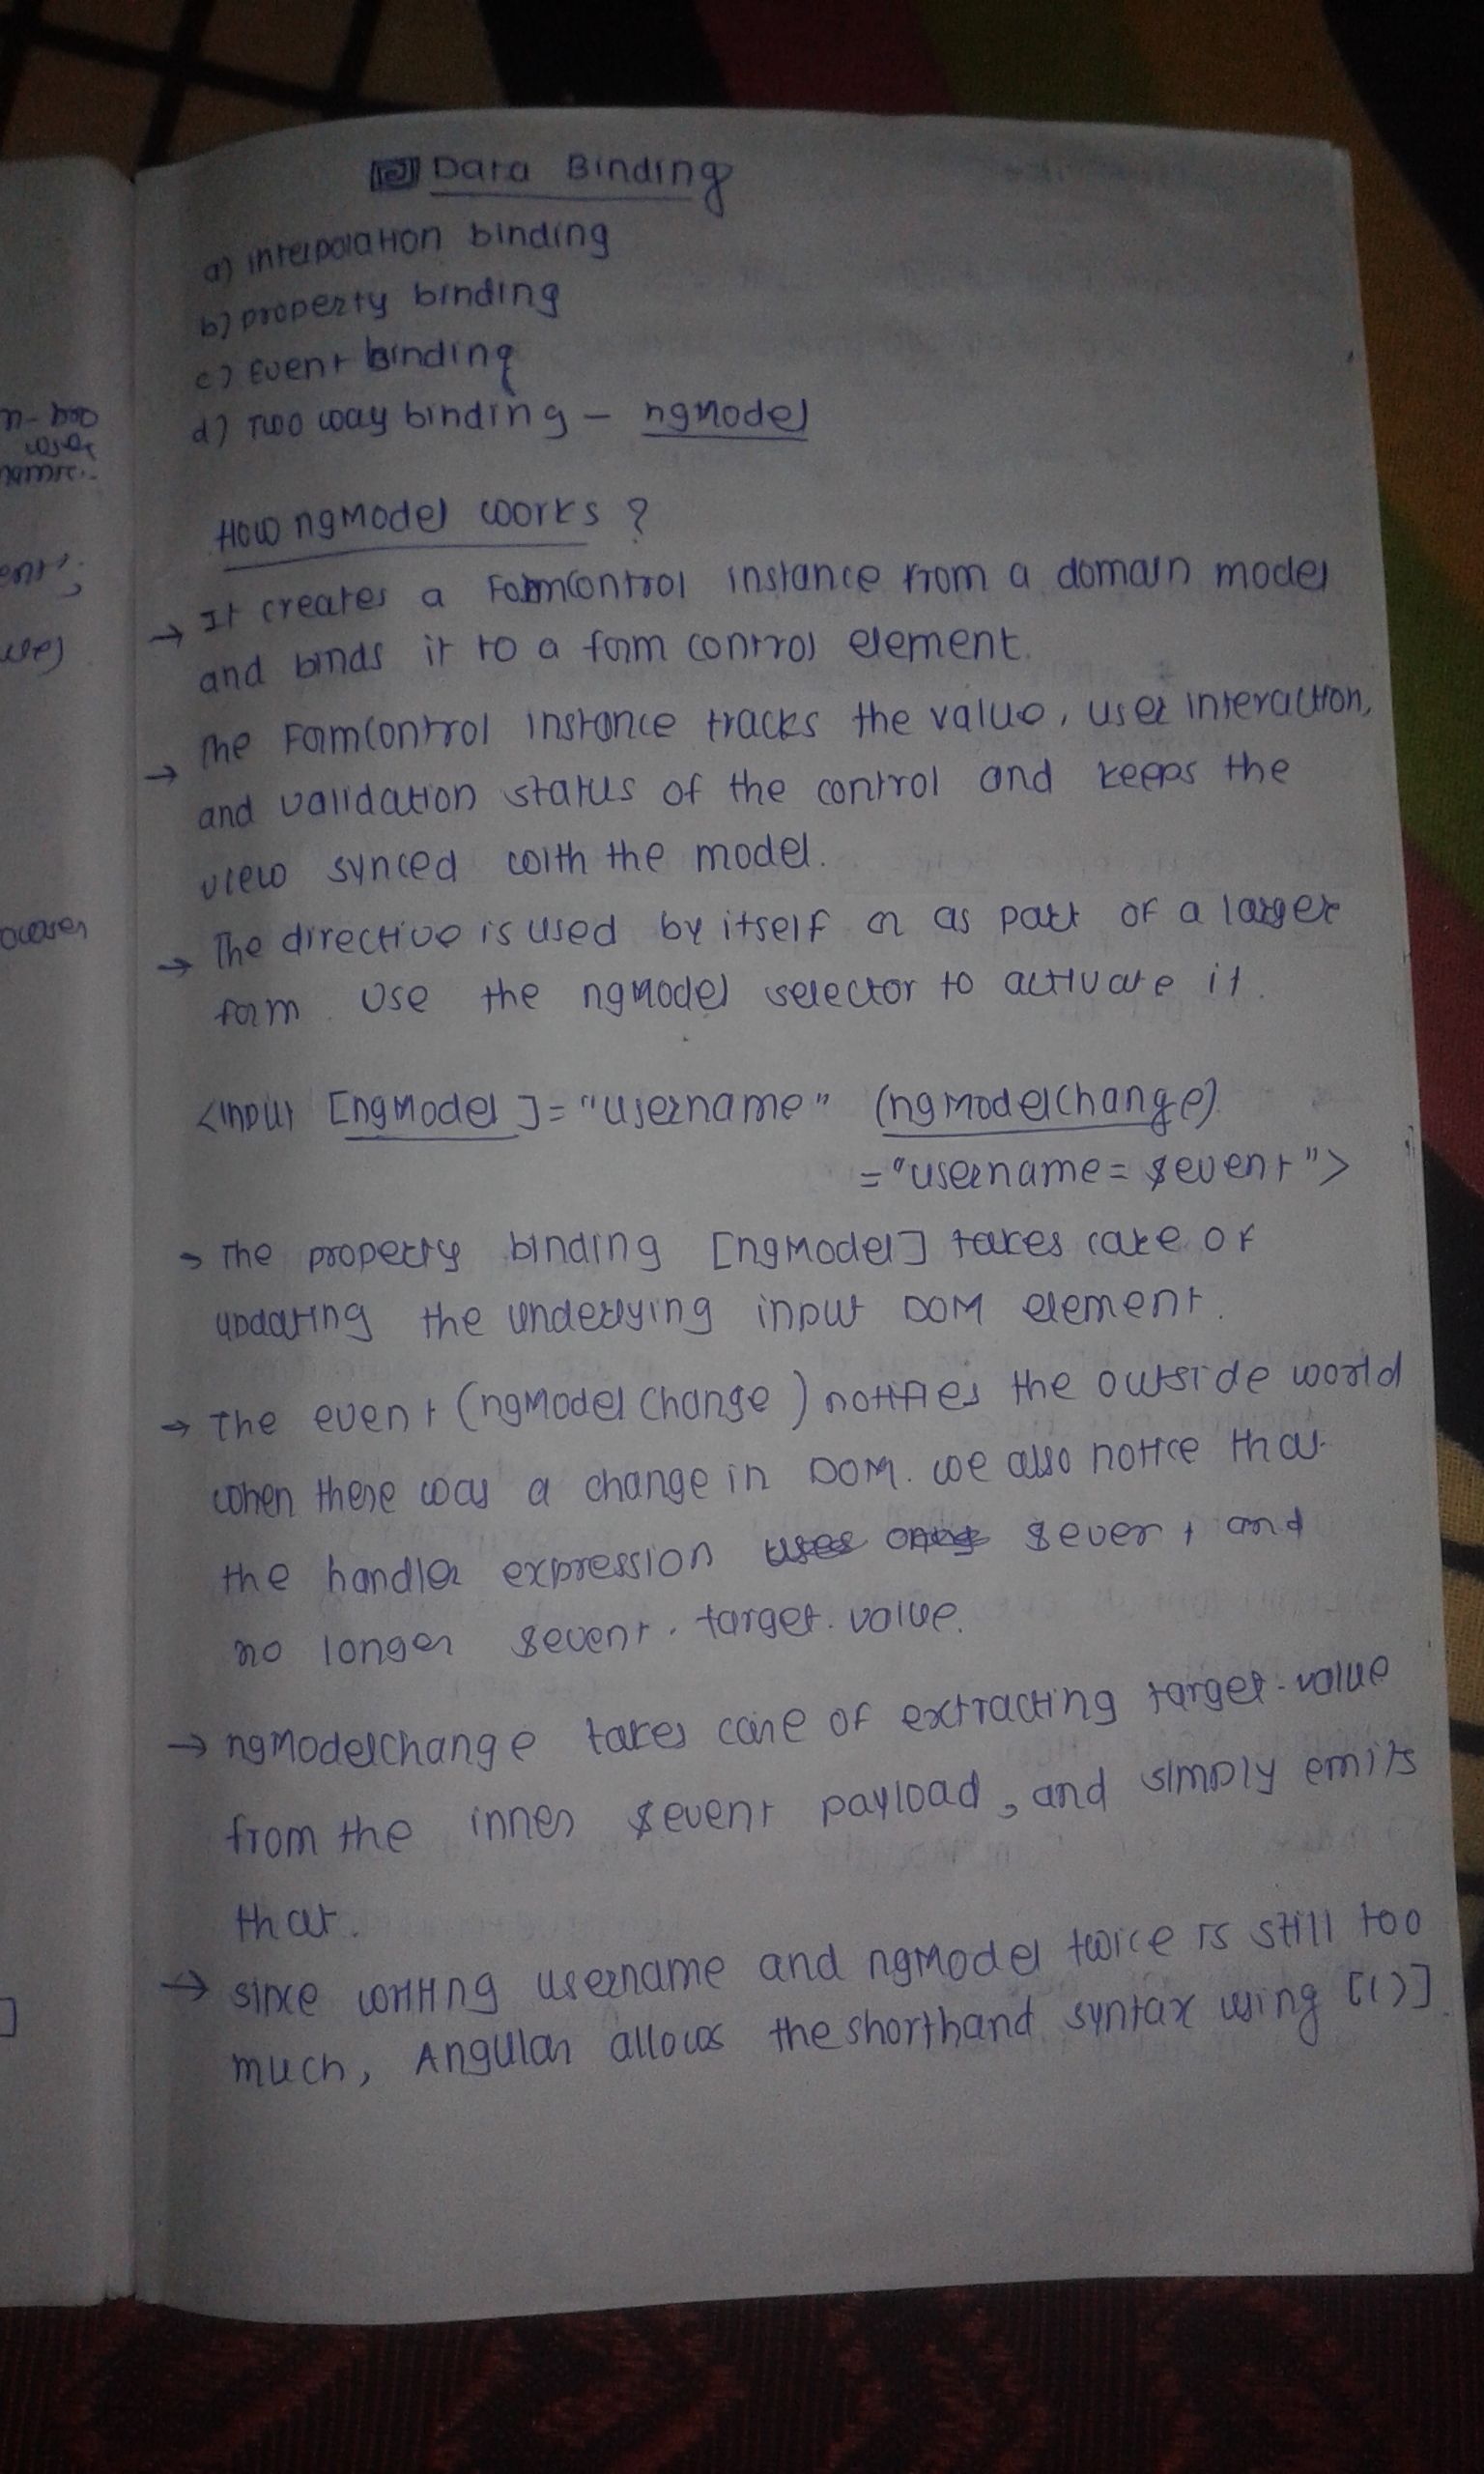 Data Binding
a) interpolation binding
b) property binding
c) Event Binding
d) Two way binding - ngModel
How ngModel works ?
→ It creates a FormControl instance from a domain model
and binds it to a form control element.
→ The FormControl instance tracks the value, user interaction,
and validation status of the control and keeps the
view synced with the model.
→ The directive is used by itself or as part of a larger
form. Use the ngModel selector to activate it.
<input [ngModel]="username" (ngModelChange)
="username= $event">
→ The property binding [ngModel] takes care of
updating the underlying input DOM element.
→ The event (ngModelChange) notifies the outside world
when there was a change in DOM. we also notice that
the handler expression $event and
no longer $event.target.value.
→ ngModelChange takes care of extracting target.value
from the inner $event payload, and simply emits
that.
→ since writing username and ngModel twice is still too
much, Angular allows the shorthand syntax using [()].